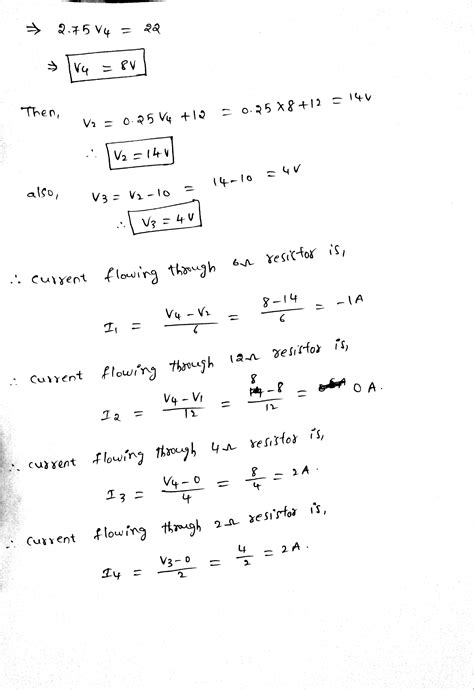 ⇒ 2.75 V4 = 22
⇒ V4 = 8V
Then, V2 = 0.25 V4 + 12 = 0.25 × 8 + 12 = 14V
∴ V2 = 14V
also, V3 = V2 - 10 = 14 - 10 = 4V
∴ V3 = 4V
∴ current flowing through 6Ω resistor is,
I1 = (V4 - V2)/6 = (8 - 14)/6 = -1A
∴ current flowing through 12Ω resistor is,
I2 = (V4 - V1)/12 = (8 - 8)/12 = 0 A.
∴ current flowing through 4Ω resistor is,
I3 = (V4 - 0)/4 = 8/4 = 2A.
∴ current flowing through 2Ω resistor is,
I4 = (V3 - 0)/2 = 4/2 = 2A.